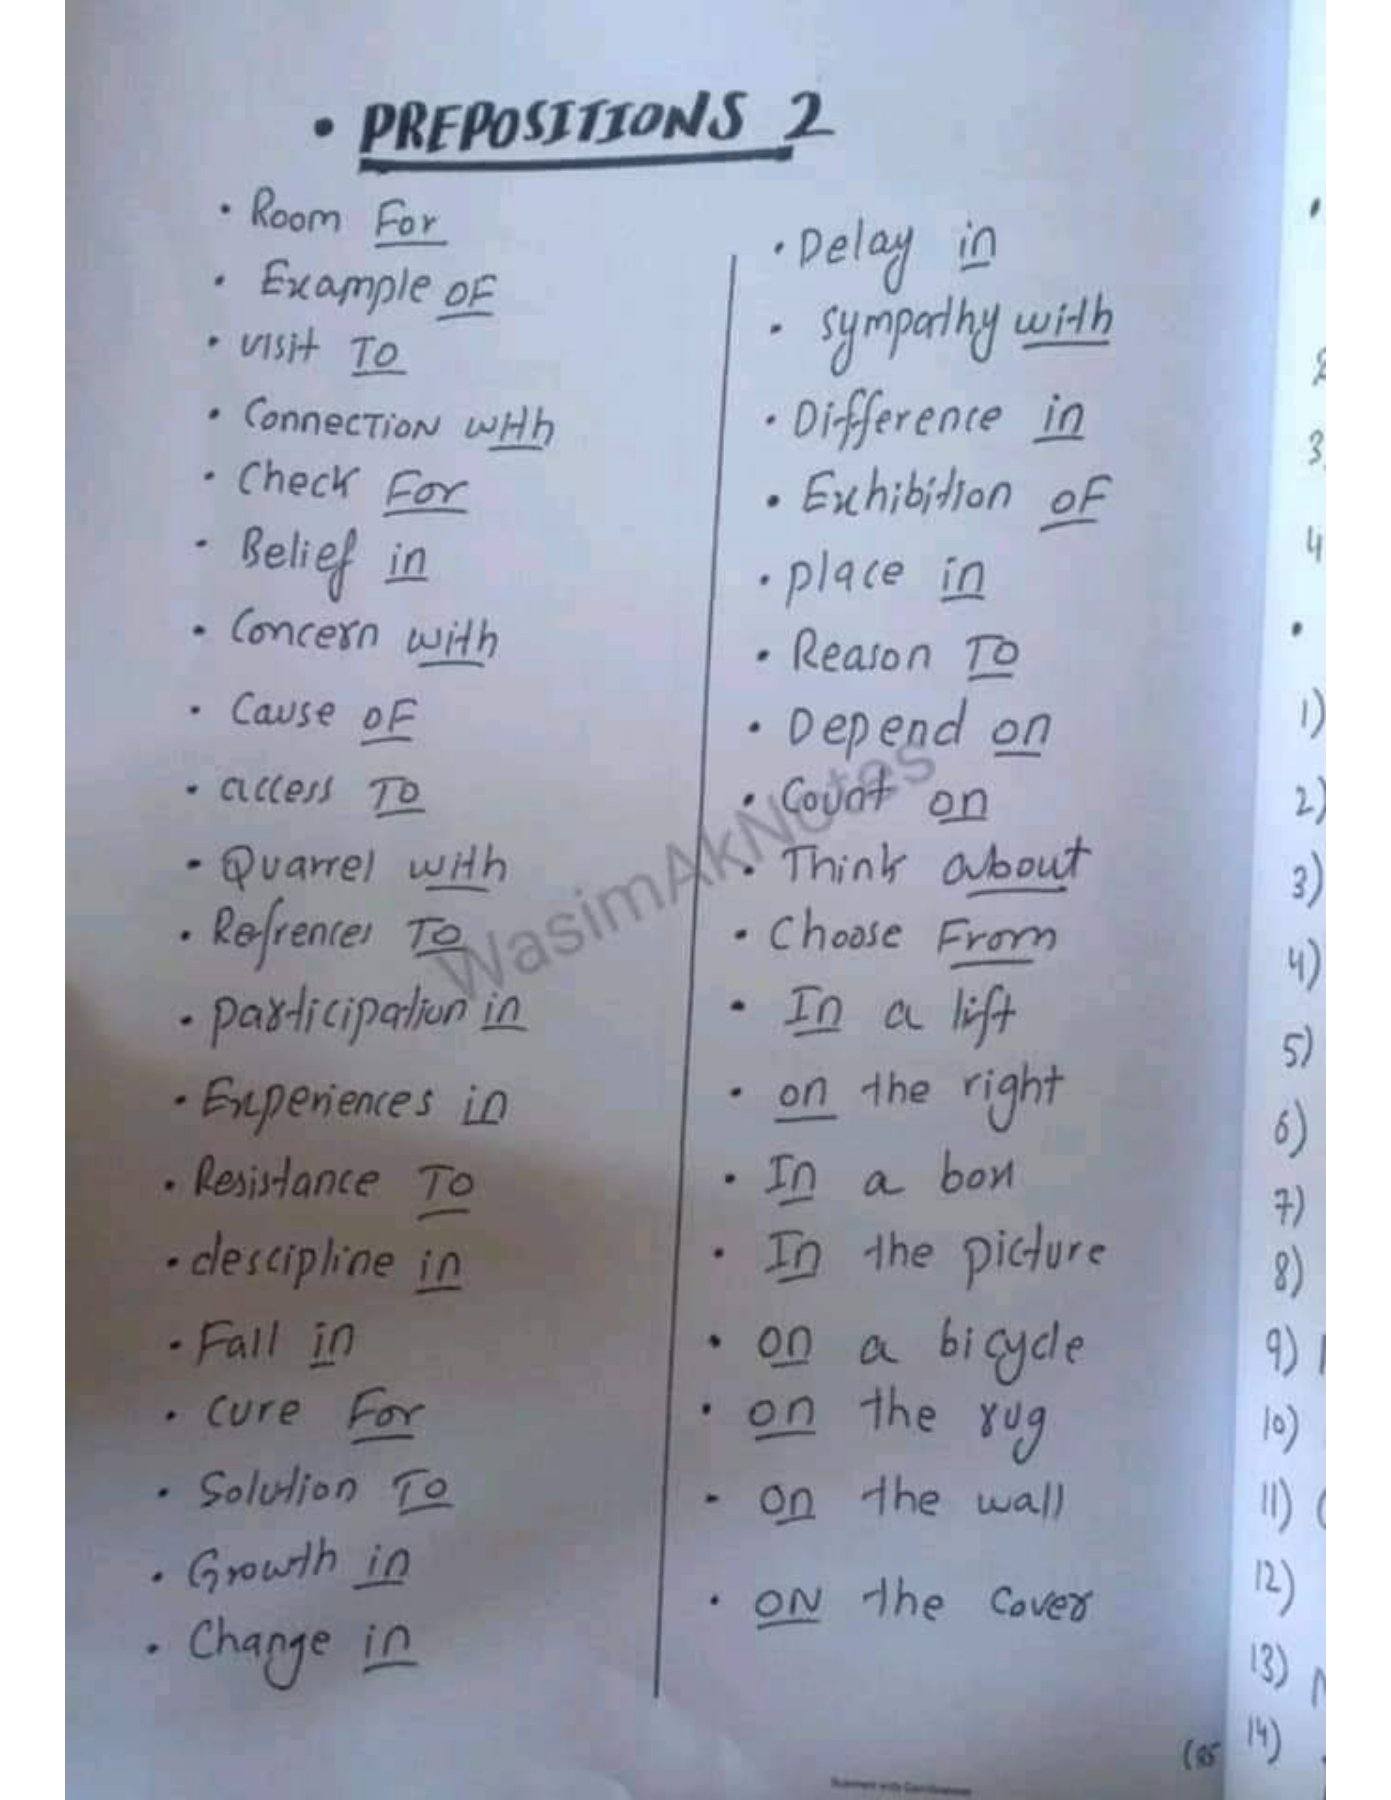 • PREPOSITIONS 2
• Room For
• Example OF
• visit To
• Connection with
• Check For
• Belief in
• Concern with
• Cause OF
• access To
• Quarrel with
• Refrences To
• participation in
• Experiences in
• Resistance To
• descipline in
• Fall in
• cure For
• Solution To
• Growth in
• Change in
• Delay in
• sympathy with
• Difference in
• Exhibition OF
• place in
• Reason To
• Depend on
• Count on
• Think about
• Choose From
• In a lift
• on the right
• In a box
• In the picture
• on a bicycle
• on the rug
• on the wall
• ON the cover
WasimAkNotes
3
4
1)
2)
3)
4)
5)
6)
7)
8)
9)
10)
11)
12)
13)
14)